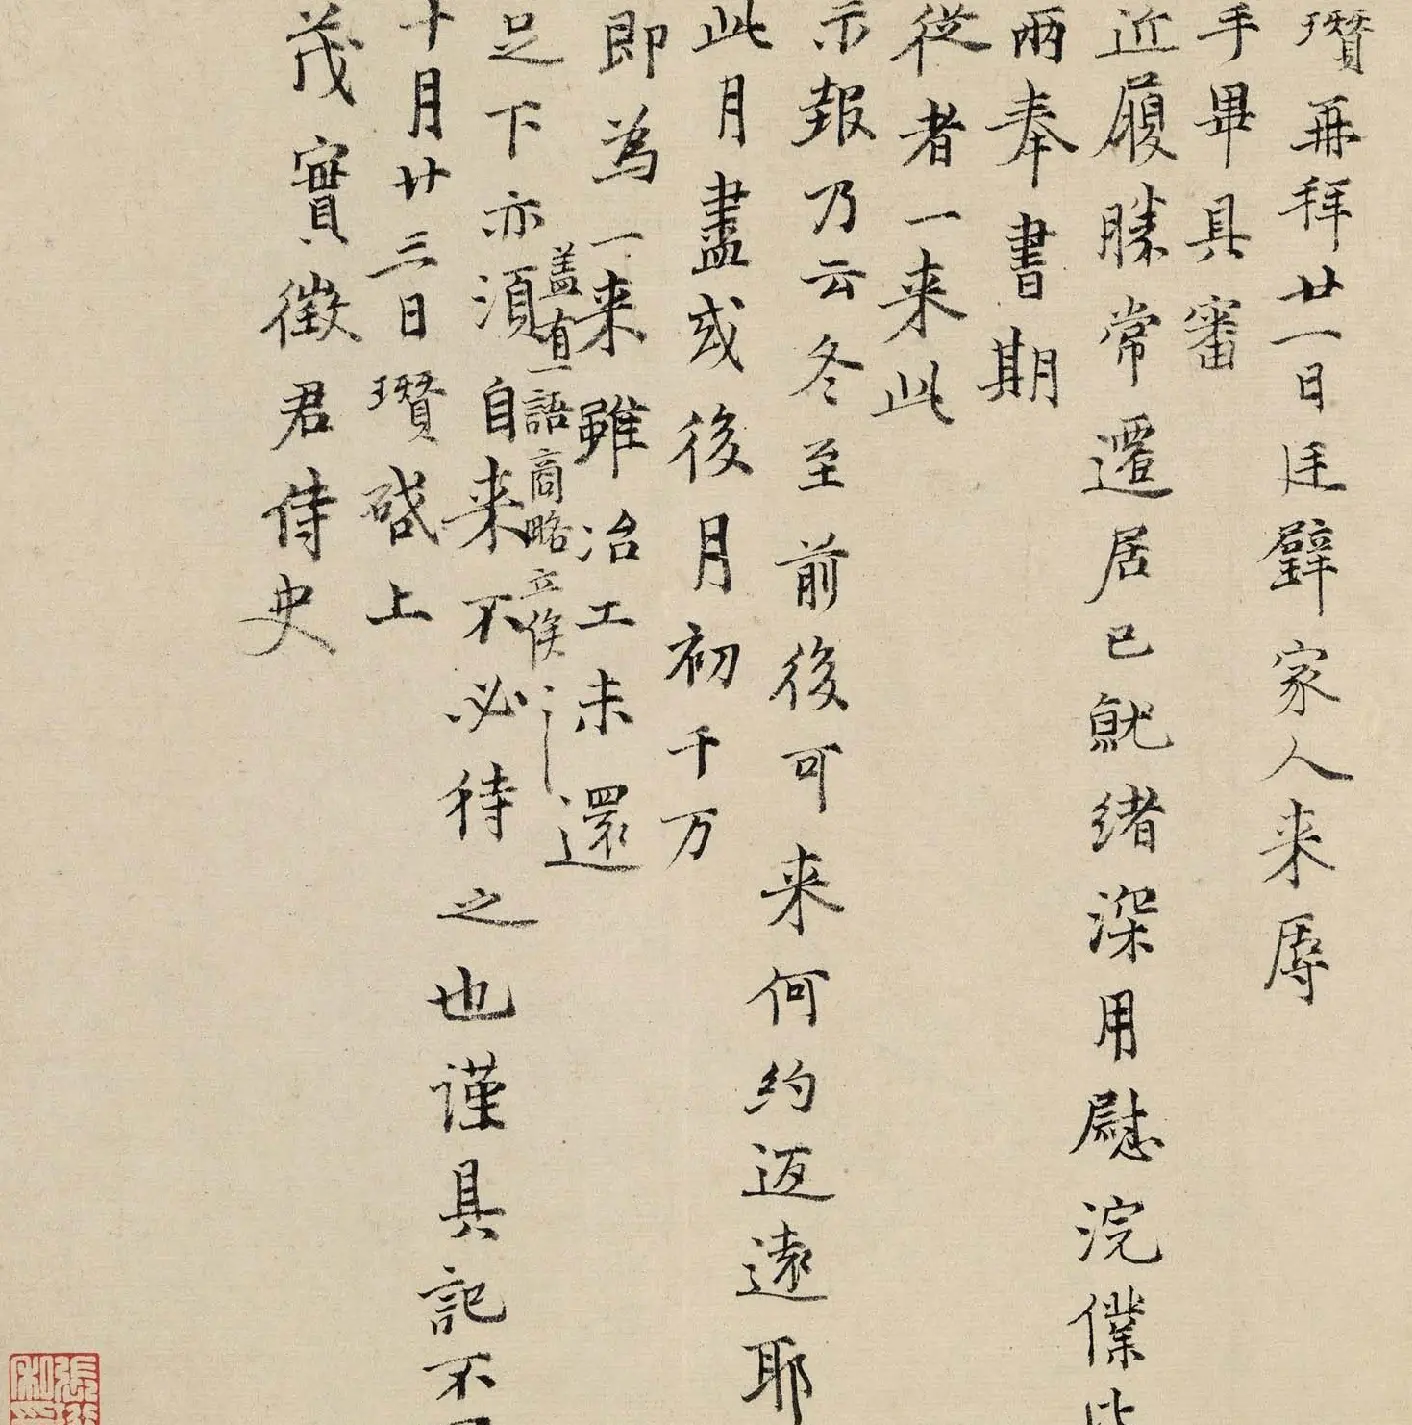 瓚再拜廿一日廷璧家人来辱
手畢具審
近履勝常遷居已就緒深用慰浣僕
兩奉書期
從者一来此
示報乃云冬至前後可来何約迃遠耶
此月盡或後月初千万
即為一来雖冶工未還
盖有一語商略立俟
足下亦須自来不必待之也謹具記不
十月廿三日瓚啓上
茂實徵君侍史